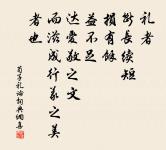 礼者
断长续短
损有余
益不足
达爱敬之文
而滋成行义之美
者也
荀子礼论词典网集